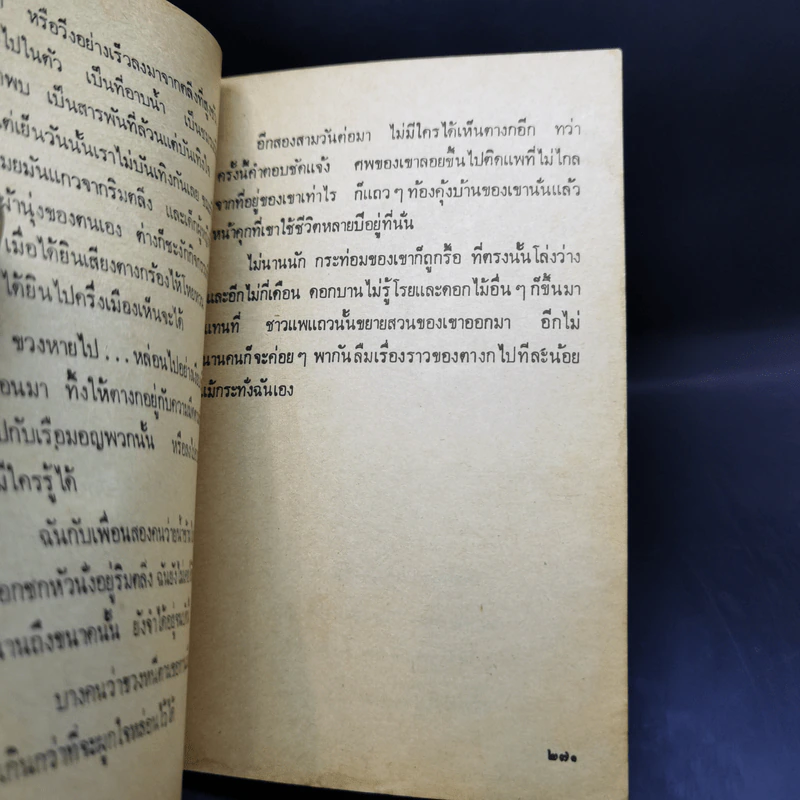 หรือวิ่งอย่างเร็วลงมาจากตลิ่งที่สูง
ไปในตัว เป็นที่อาบน้ำ เป็น
เป็นสารพันที่ล้วนแต่บันเทิงใจ
แต่เย็นวันนั้นเราไม่บันเทิงกันเลย
มันแกวจากริมตลิ่ง และเด็กผู้
ผ้านุ่งของตนเอง ต่างก็ชะงักกิจกรรม
เมื่อได้ยินเสียงตางกร้องไห้โหยหวน
ได้ยินไปครึ่งเมืองเห็นจะได้
ขวงหายไป ... หล่อนไปอย่าง
ทิ้งให้ตางกอยู่กับความมืด
ไปกับเรือมอญพวกนั้น หรือ
มีใครรู้ได้
ฉันกับเพื่อนสองคน
ชกหัวนั่งอยู่ริมตลิ่ง ฉันยังไม่
นานถึงขนาดนั้น ยังจำได้อยู่
บางคนว่าขวงหนีตา
เกินกว่าที่จะผูกใจหล่อนไว้ได้
อีกสองสามวันต่อมา ไม่มีใครได้เห็นตางกอีก ทว่า
ครั้งนี้คำตอบชัดแจ้ง ศพของเขาลอยขึ้นไปติดแพที่ไม่ไกล
จากที่อยู่ของเขาเท่าไร ก็แถว ๆ ท้องคุ้งบ้านของเขานั่นแล้ว
หน้าคุกที่เขาใช้ชีวิตหลายปีอยู่ที่นั่น
ไม่นานนัก กระท่อมของเขาก็ถูกรื้อ ที่ตรงนั้นโล่งว่าง
และอีกไม่กี่เดือน ดอกบานไม่รู้โรยและดอกไม้อื่น ๆ ก็ขึ้นมา
แทนที่ ชาวแพแถวนั้นขยายสวนของเขาออกมา อีกไม่
นานคนก็จะค่อย ๆ พากันลืมเรื่องราวของตางกไปทีละน้อย
แม้กระทั่งฉันเอง
๒๗๑